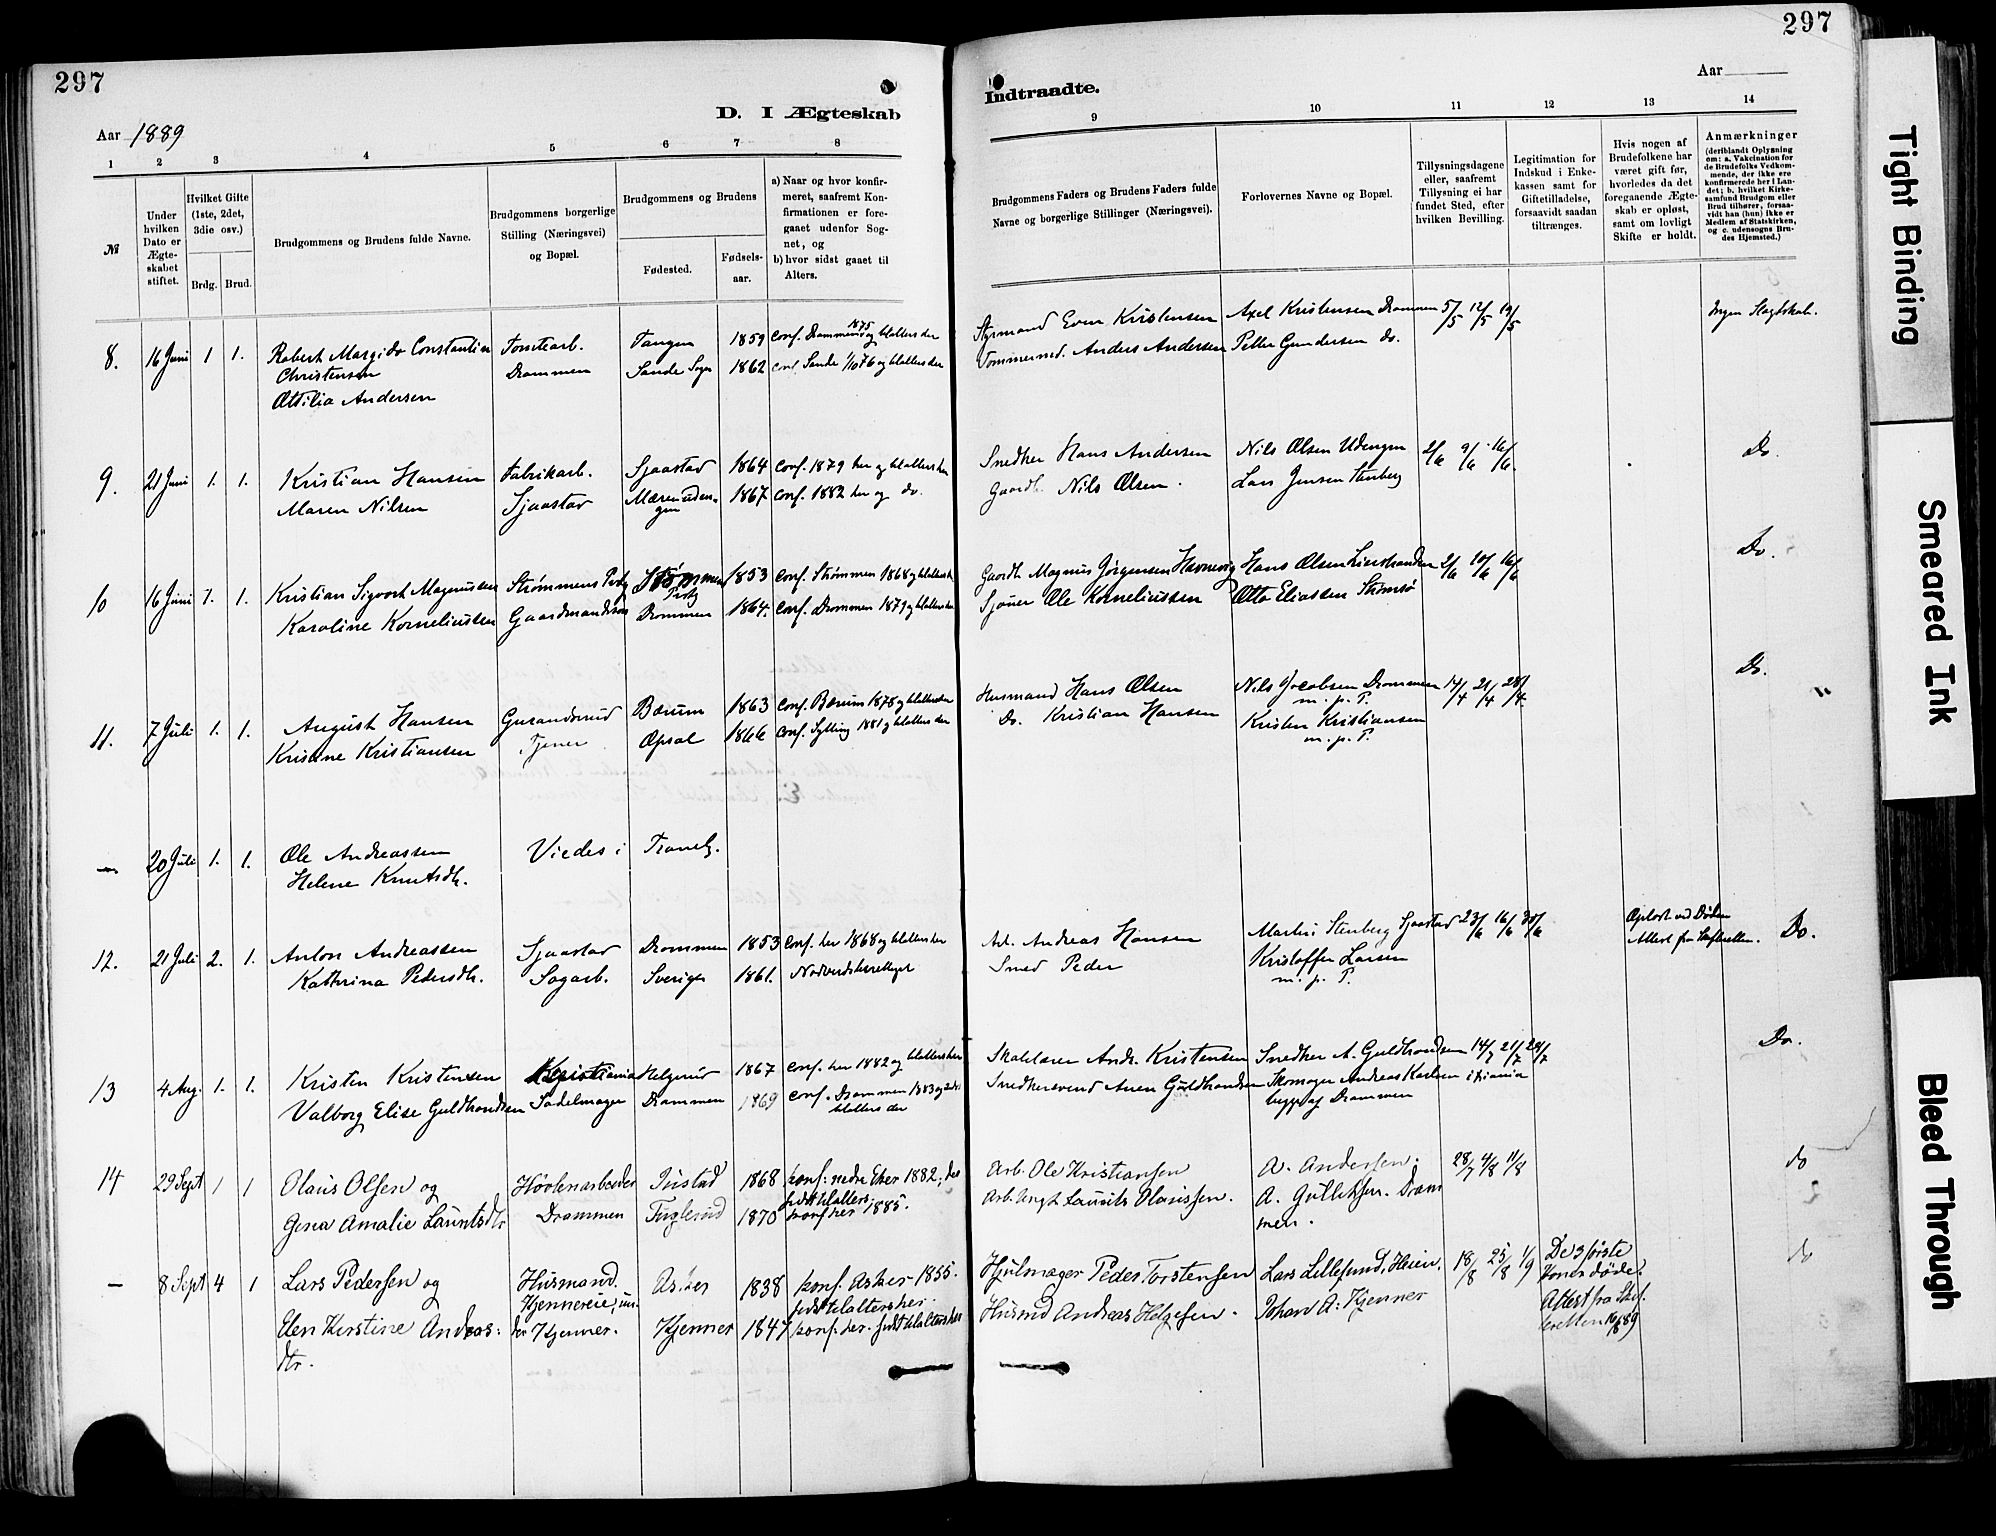 297
D. I Ægteskab
Aar 1889
1 2 3 4 5 6 7 8
№
Under hvilken Dato er Ægteskabet stiftet.
Hvilket Gifte (1ste, 2det, 3die osv.)
Brdg. Brud.
Brudgommens og Brudens fulde Navne.
Brudgommens borgerlige Stilling (Næringsvei) og Bopæl.
Brudgommens og Brudens
Fødested. Fødsels-aar.
a) Naar og hvor konfirmeret, saafremt Konfirmationen er foregaaet udenfor Sognet, og
b) hvor sidst gaaet til Alters.
8. 16 Juni 1 1. Robert Margido Constantin Tomtearb. Tangen 1859 Conf. Drammen 1875 og tilalters der
Christensen Drammen Sande Sogn 1862 conf. Sande 1/10 76 og tilalters der
Ottilia Andersen
9. 21 Juni 1. 1. Kristian Hansen Fabrikarb. Sjaastad 1864 Conf. 1879 her og tilalters her
Maren Nilsen Sjaastad Mæren uden- 1867 Conf. 1882 her og do.
gen
10 16 Juni 1. 1. Kristian Sigvort Magnussen Strømmens Prstg Strømmen 1853 Conf. Strømmen 1868 og tilalters der
Prstg
Karoline Korneliussen Gaardmandssøn Drammen 1864. Conf. Drammen 1879 og tilalters her
11. 7 Juli 1. 1. August Hansen Bærum 1863 Conf. Bærum 1878 og tilalters der
Kristine Kristiansen Tjener Opsal 1866 Conf. Sylling 1881 og tilalters der
— 20 Juli 1. 1. Ole Andreassen Viedes i Tranby.
Helene Knutsdtr.
12. 21 Juli 2. 1. Anton Andreassen Sjaastad Drammen 1853 Conf. her 1868 og tilalters her
Kathrina Pedersdtr. Sagarb. Sverige 1861.
13 4 Aug. 1. 1. Kristen Kristensen Kristiania Helgerud 1867 Conf. her 1882 og tilalters her
Valborg Elise Guldbrandsen Sadelmager Drammen 1869 Conf. Drammen 1883 og
tilalters der
14 29 Sept 1 1 Olaus Olsen og Høvlenarbeider 1868 konf. nedre Eker 1882, der
sidst tilalters.
Gena Amalie Lauritsdtr Drammen Fuglerud 1870 konf her 1885.
— 8 Sept 4 1 Lars Pedersen og Husmand. Asker 1838 konf. Asker 1855.
Kjennereie, un- sidst tilalters her.
Elen Kirstine Andreas- der Kjenner. Kjenner 1847 konf. her. sidst tilalters her
dtr.
297
Indtraadte.
Aar
9 10 11 12 13 14
Brudgommens Faders og Brudens Faders fulde Navne og borgerlige Stillinger (Næringsvei).
Forlovernes Navne og Bopæl.
Tillysningsdagene eller, saafremt Tillysning ei har fundet Sted, efter hvilken Bevilling.
Legitimation for Indskud i Enkekassen samt for Giftetilladelse, forsaavidt saadan tiltrænges.
Hvis nogen af Brudefolkene har været gift før, hvorledes da det foregaaende Ægteskab er opløst, samt om lovligt Skifte er holdt.
Anmærkninger
(deriblandt Oplysning om: a. Vakcination for de Brudefolks Vedkommende, der ikke ere konfirmerede her i Landet; b. hvilket Kirkesamfund Brudgom eller Brud tilhører, forsaavidt han (hun) ikke er Medlem af Statskirken, og c. udensogns Brudes Hjemsted.)
Styrmand Even Kristensen Axel Kristensen Drammen 5/5 12/5 19/5 Ingen Slagtskab.
Tømmermd. Anders Andersen Petter Gundersen do.
Snedker Hans Andersen Nils Olsen Udengen 2/6 9/6 16/6. Do.
Gaardb. Nils Olsen. Lars Jensen Stenberg
Gaardb. Magnus Jørgensen Havnevig Hans Olsen Lierstranden 2/6 10/6 16/6 Do.
Sjømr Ole Korneliussen Otto Eliassen Strømsø
Husmand Hans Olsen Nils Jacobsen Drammen 14/4 21/4 28/4. Do.
m. p. P.
Do. Kristian Hansen Kristen Kristiansen
m. p. P.
Arb. Andreas Hansen Martin Stenberg Sjaastad 23/6 16/6 30/6 Opløst ved Døden Do.
Attest fra Skifteretten.
Smed Peder Kristoffer Larsen
m. p. P.
Skolelærer Andr. Kristensen Snedker A. Guldbrandsen 14/7 21/7 28/7 Do.
Snedkersvend Anen Guldbrandsen Skomager Andreas Karlsen
begge af Drammen
Arb. Ole Kristiansen A. Andersen. 28/7 4/8 11/8 do
Arb. Ungk Laurits Olaussen. A. Gulliksen. Dram
men.
Hjulmager Peder Torstensen Lars Lillesund, Heien. 18/8 25/8 1/9 De 3 første do
Koner døde.
Husmd Andreas Helgesen. Johan A. Kjenner Attest fra Skif-
teretten 16/8 89
Tight Binding
Smeared Ink
Bleed Through